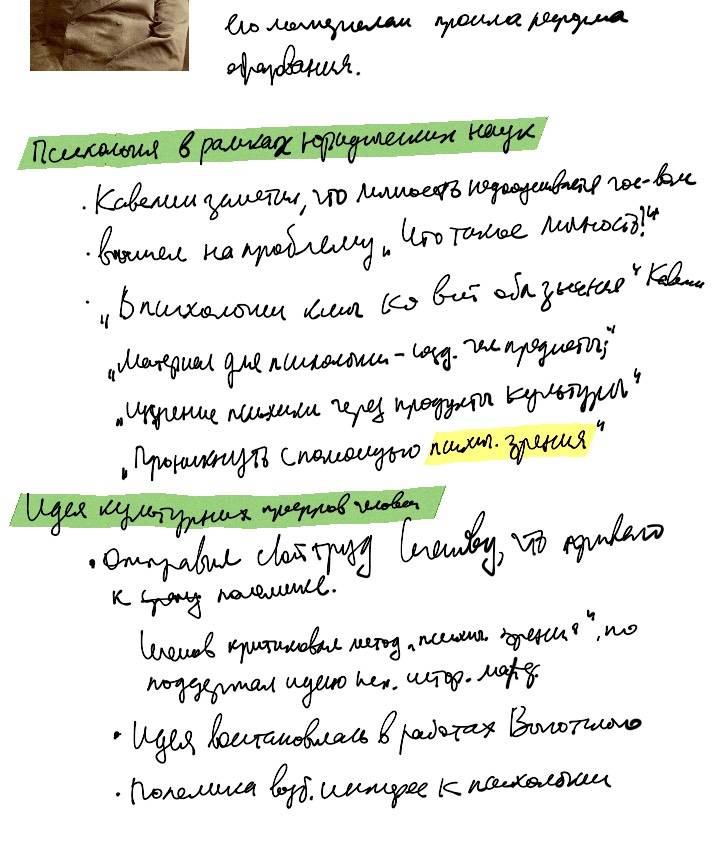 его материалам прошла реформа
образования.
Психология в рамках юридических наук
· Кавелин заметил, что личность недооценивается гос-вом
· вышел на проблему „Что такое личность?"
· „В психологии ключ ко всей обл. знания" Кавелин
„Материал для психологии – созд. чел. предметы;"
„Изучение психики через продукты культуры"
„Проникнуть с помощью психич. зрения"
Идея культурных человека
· Отправил свой труд Сеченову, что привело
к полемике.
Сеченов критиковал метод „психич. зрения", но
поддержал идею
· Идея восстановлась в работах Выготского
· Полемика возб. интерес к психологии